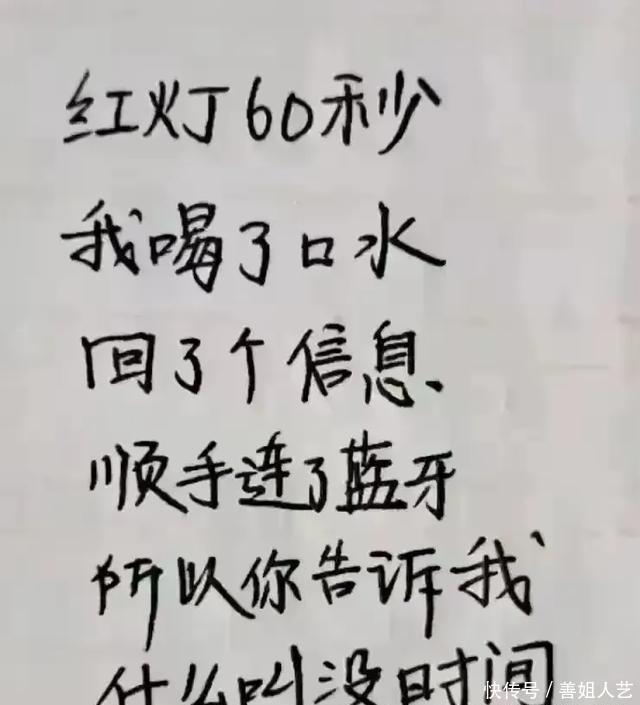 红灯60秒
我喝了口水
回了个信息、
顺手连了蓝牙
所以你告诉我
什么叫没时间
快传号/善姐人艺